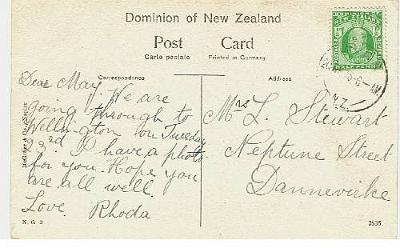 Dominion of New Zealand
Post Card
Carto postale
Printed in Germany
Correspondence
Address
Dear May. We are
going through to
Wellington on Tuesday
23rd. I have a photo
for you. Hope you
are all well.
Love Rhoda
Mrs L. Stewart
Neptune Street
Dannevirke
NEW ZEALAND
HALF PENNY
N.Z.
N. G. 2
2535